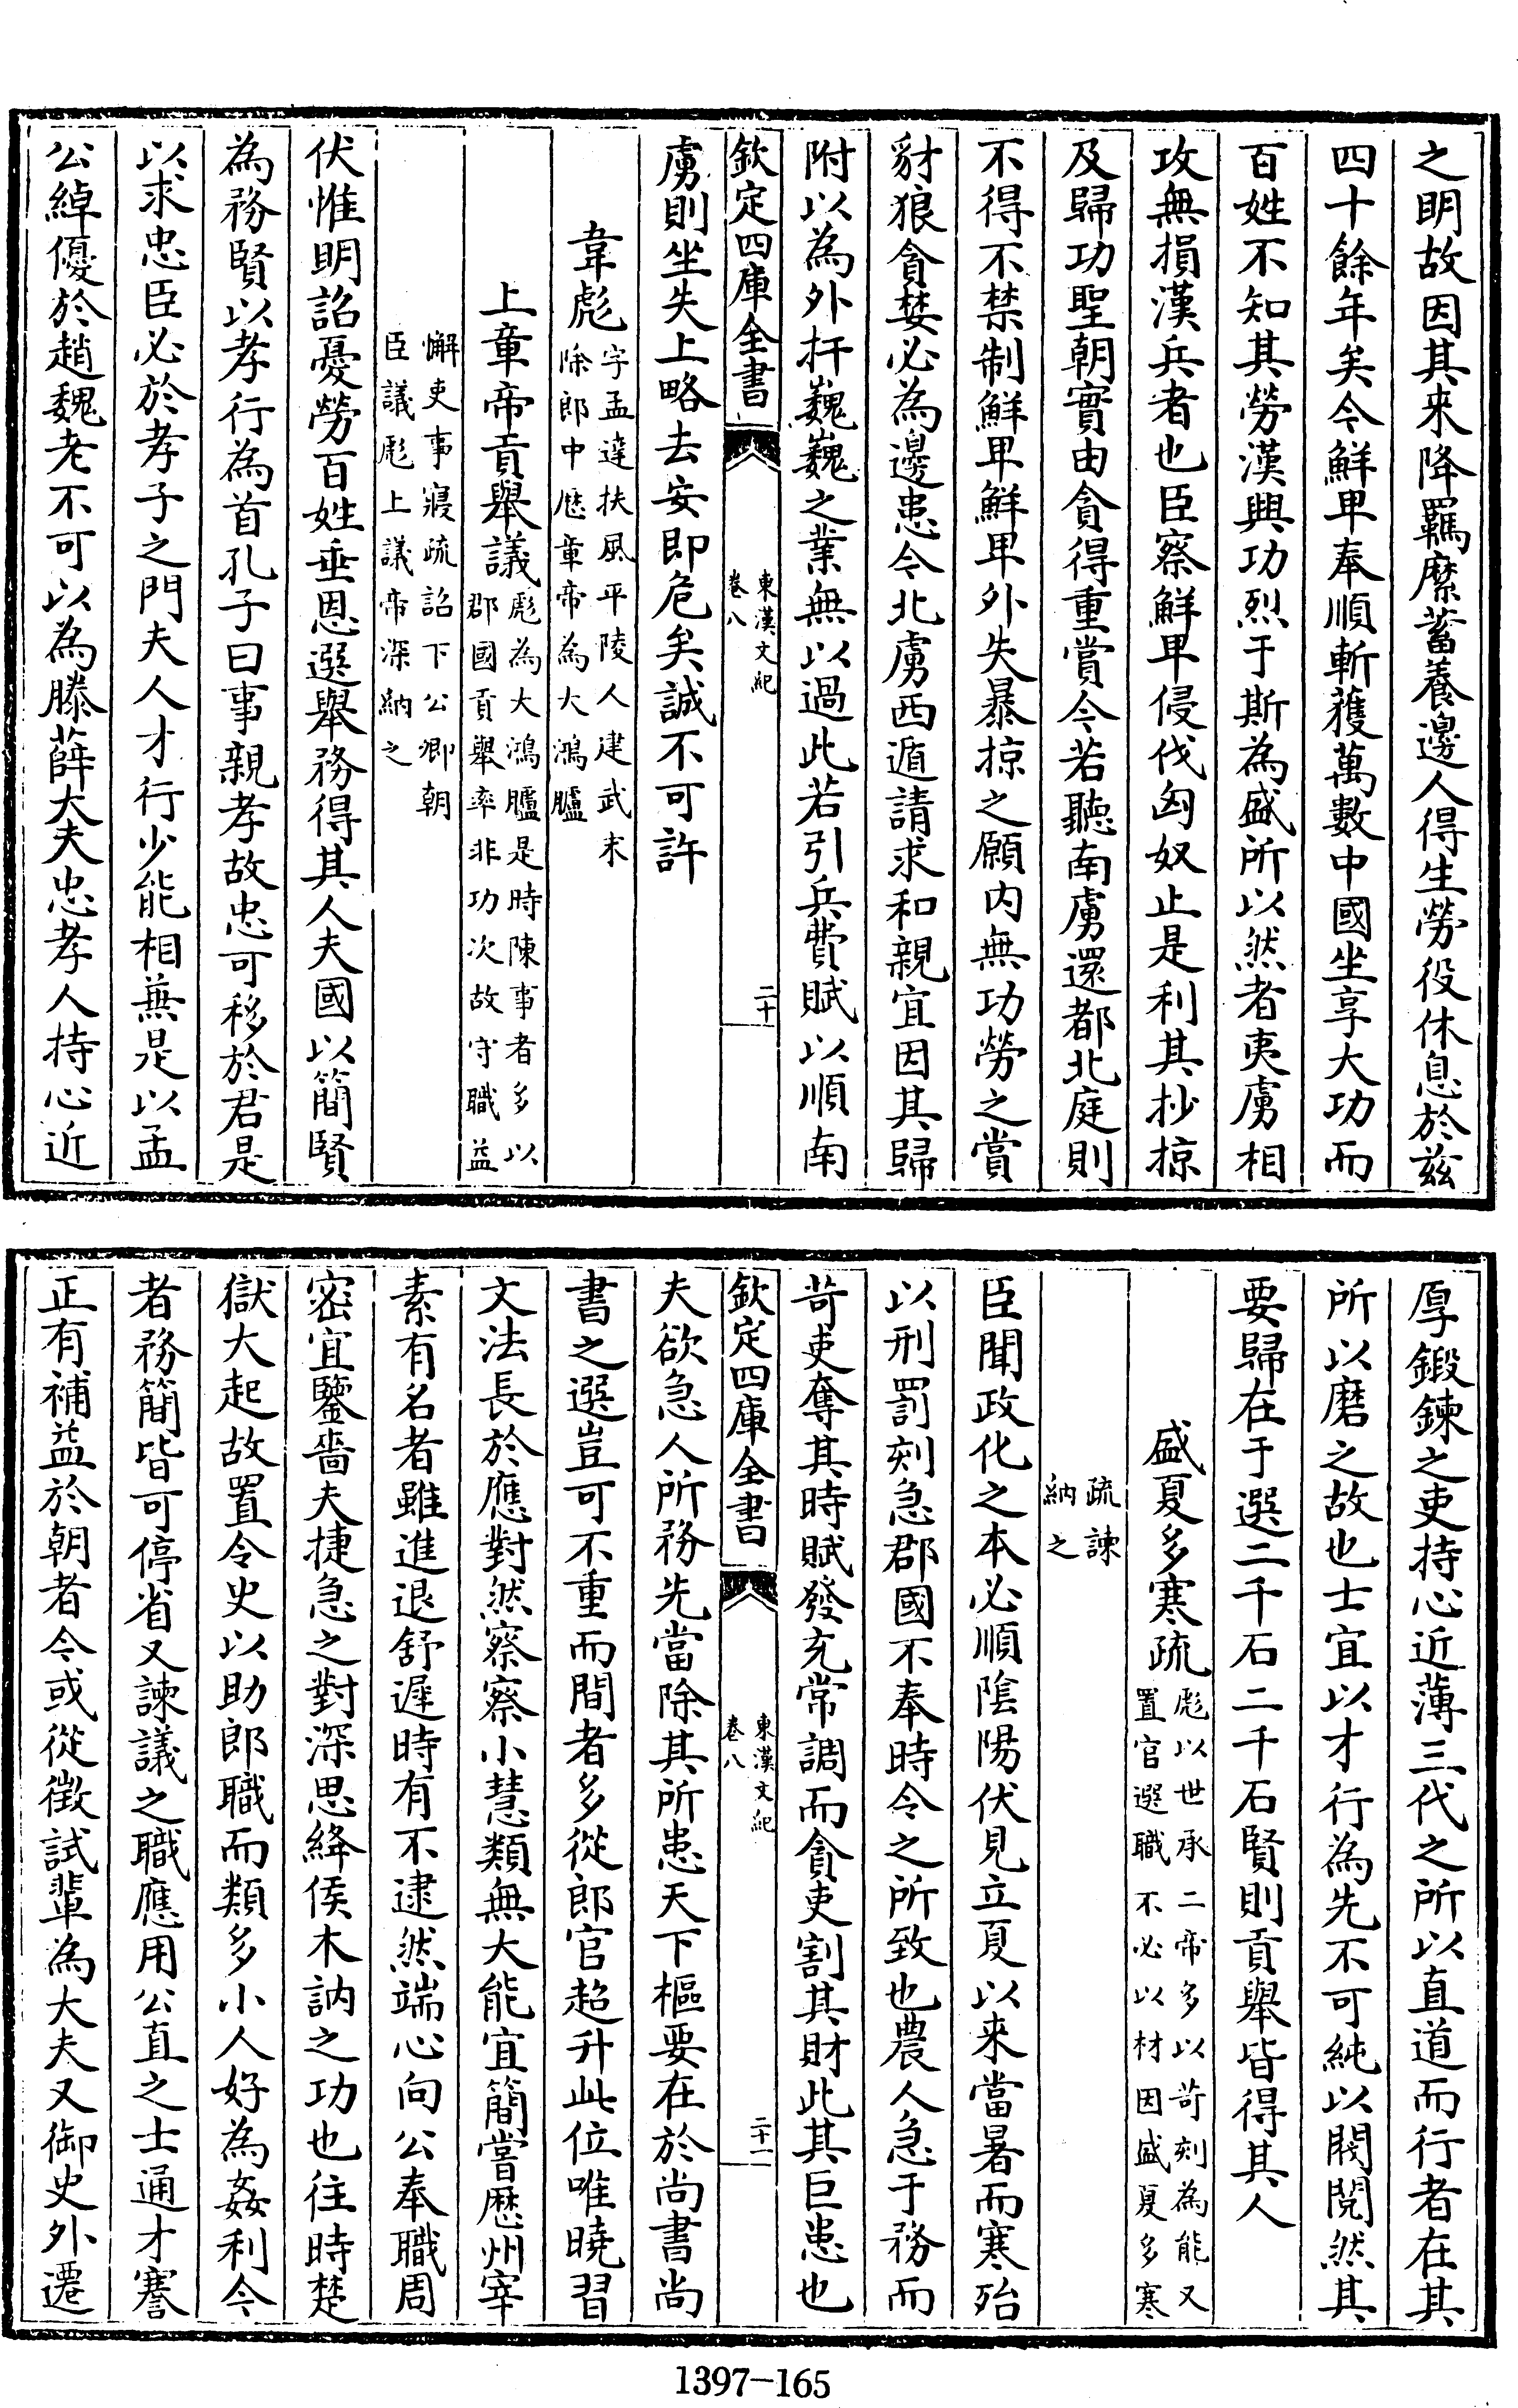 之明故因其來降羈縻蓄養邊人得生勞役休息於兹
四十餘年矣今鮮卑奉順斬獲萬數中國坐享大功而
百姓不知其勞漢興功烈于斯為盛所以然者夷虜相
攻無損漢兵者也臣察鮮卑侵伐匈奴止是利其抄掠
及歸功聖朝實由貪得重賞今若聽南虜還都北庭則
不得不禁制鮮卑鮮卑外失暴掠之願内無功勞之賞
豺狼貪婪必為邊患今北虜西遁請求和親宜因其歸
附以為外扞巍巍之業無以過此若引兵費賦以順南
欽定四庫全書
東漢文紀
卷八
二十
虜則坐失上略去安即危矣誠不可許
韋彪
字孟達扶風平陵人建武末
除郎中歴章帝為大鴻臚
上章帝貢舉議
彪為大鴻臚是時陳事者多以
郡國貢舉率非功次故守職益
懈吏事寖疏詔下公卿朝
臣議彪上議帝深納之
伏惟明詔憂勞百姓垂恩選舉務得其人夫國以簡賢
為務賢以孝行為首孔子曰事親孝故忠可移於君是
以求忠臣必於孝子之門夫人才行少能相兼是以孟
公綽優於趙魏老不可以為滕薛大夫忠孝人持心近
厚鍛鍊之吏持心近薄三代之所以直道而行者在其
所以磨之故也士宜以才行為先不可純以閥閱然其
要歸在于選二千石二千石賢則貢舉皆得其人
盛夏多寒疏
彪以世承二帝多以苛刻為能又
置官選職不必以材因盛夏多寒
疏諫
納之
臣聞政化之本必順陰陽伏見立夏以來當暑而寒殆
以刑罰刻急郡國不奉時令之所致也農人急于務而
苛吏奪其時賦發充常調而貪吏割其財此其巨患也
欽定四庫全書
東漢文紀
卷八
二十一
夫欲急人所務先當除其所患天下樞要在於尚書尚
書之選豈可不重而間者多從郎官超升此位唯曉習
文法長於應對然察察小慧類無大能宜簡嘗歴州宰
素有名者雖進退舒遲時有不逮然端心向公奉職周
密宜鑒嗇夫捷急之對深思絳侯木訥之功也往時楚
獄大起故置令史以助郎職而類多小人好為姦利今
者務簡皆可停省又諫議之職應用公直之士通才謇
正有補益於朝者今或從徵試輩為大夫又御史外遷
1397-165